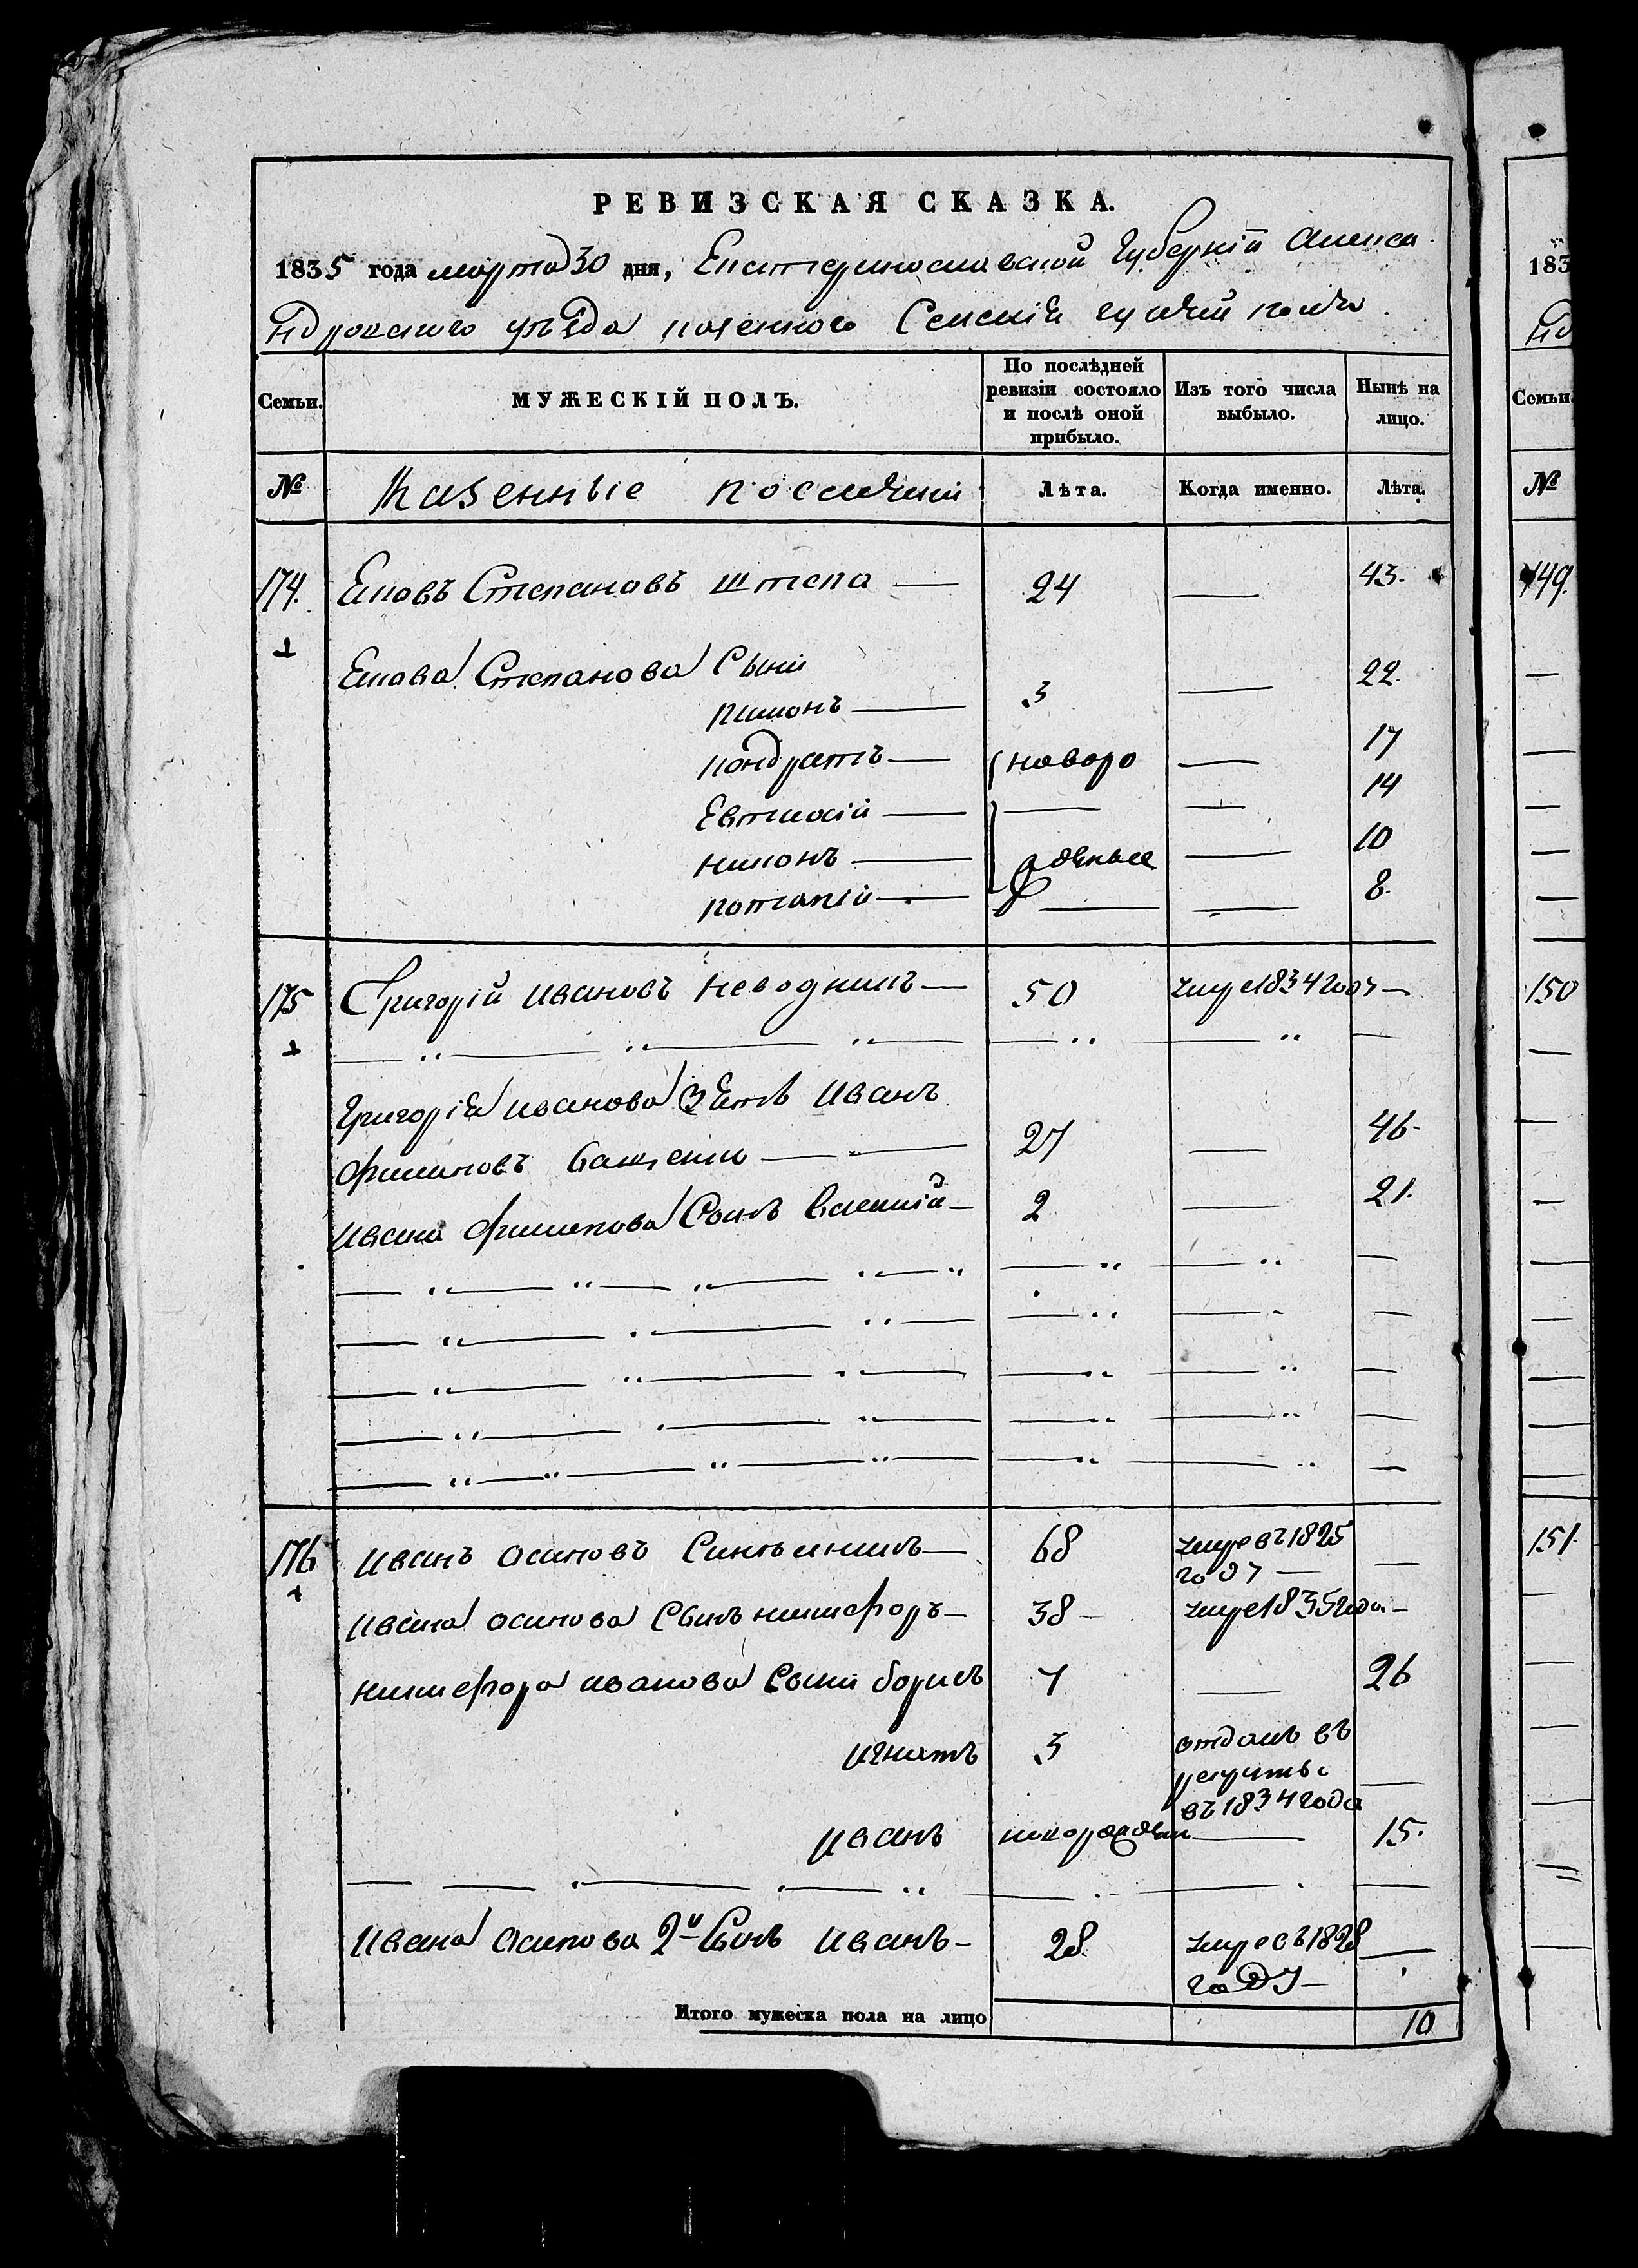 РЕВИЗСКАЯ СКАЗКА.
1835 года марта 30 дня, Екатеринославской Губерніи Алекса
ндровского уѣзда казенного Селенія
Семьи. МУЖЕСКІЙ ПОЛЪ. По послѣдней ревизіи состояло и послѣ оной прибыло. Изъ того числа выбыло. Нынѣ на лицо.
№ Казенные поселяни Лѣта. Когда именно. Лѣта.
174. Яковъ Степановъ штепа — 24 — 43.
Якова Степанова Сыни
пимонъ — 3 — 22.
кондратъ — новоро — 17
Евтихій — — — 14
никонъ — жденые — 10
потапій — — — 8.
175 Григорій Ивановъ Неводникъ — 50 умре 1834 году —
Григорія Иванова Зять Иванъ
Филиповъ ващенко — 27 — 46.
Ивана Филипова Сынъ Василій — 2 — 21.
176 Иванъ Осиповъ — 68 умре въ 1825
году — —
Ивана Осипова Сынъ никифоръ — 38 — умре 1835 года —
никифора иванова Сыни борисъ 7 — 26
игнатъ 3 отданъ въ
рекруты
въ 1834 года —
Иванъ новорожден — 15.
Ивана Осипова 2й Сынъ Иванъ — 28 умре въ 1828
году — —
Итого мужеска пола на лицо 10
183
нд
Семьи.
№
149.
150
151.